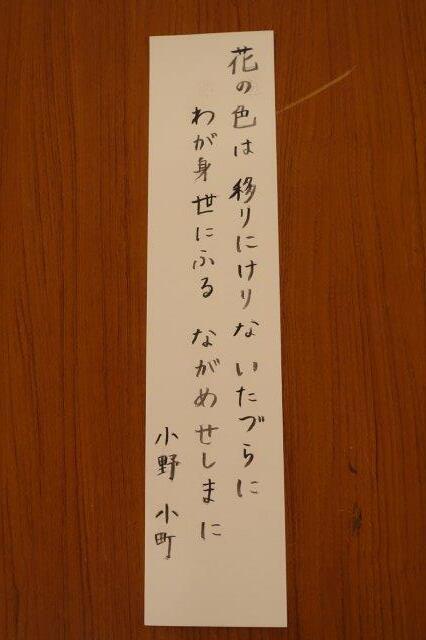 花の色は 移りにけりな いたづらに
わが身世にふる ながめせしまに
小野 小町